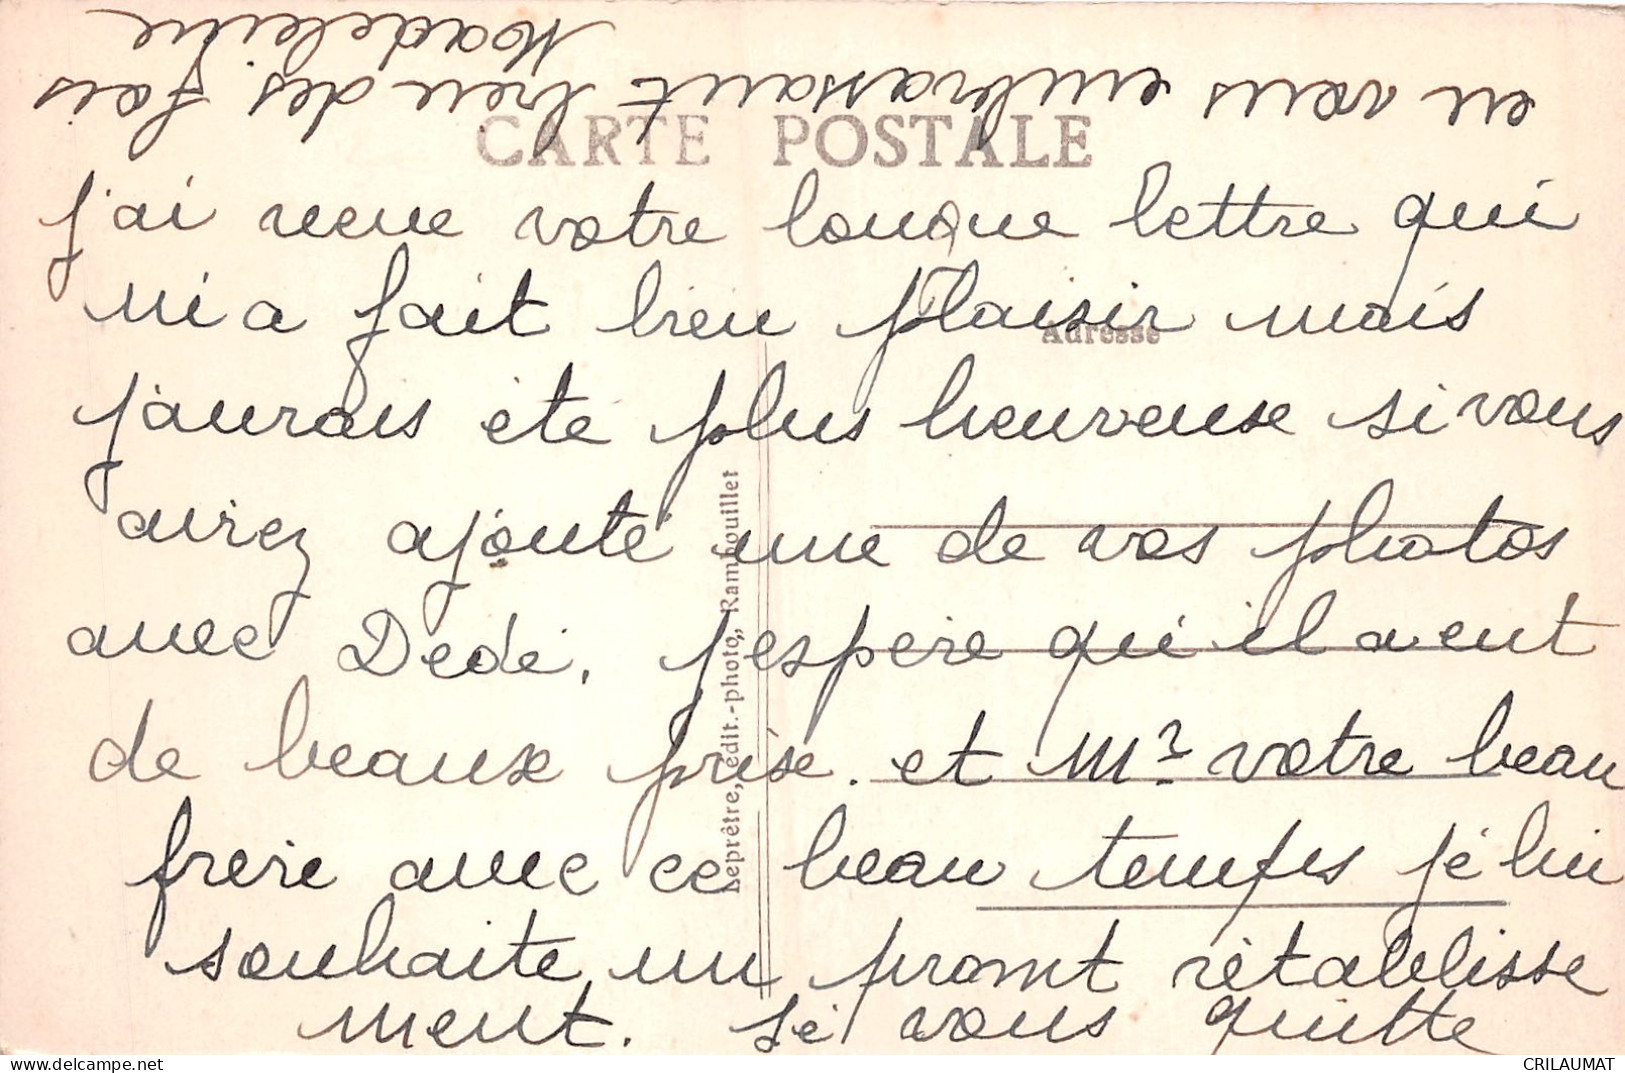 j'ai reçue votre longue lettre qui
m'a fait bien plaisir mais
j'aurais été plus heureuse si vous
aviez ajouté une de vos photos
avec Dédé. j'espère qu'il a eut
de beaux prise. et Mr votre beau
frère avec ce beau temps je lui
souhaite un promt rétablisse
ment. je vous quitte
en vous embrassant bien des fois
Madeleine
CARTE POSTALE
Adresse
Leprêtre, édit.-photo, Rambouillet
delcampe.net
CRILAUMAT